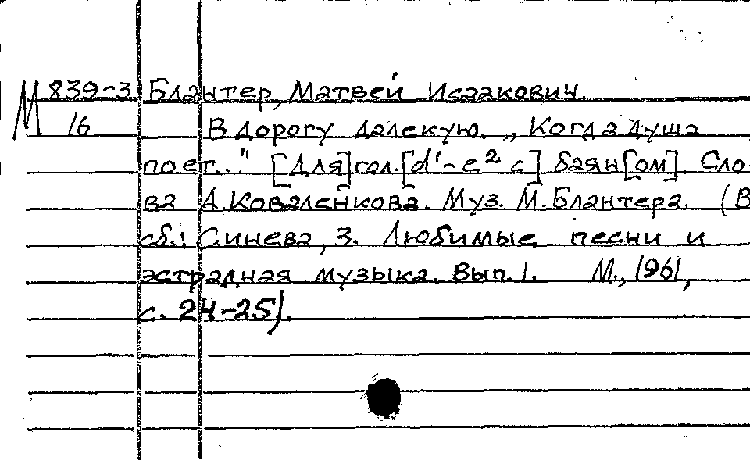 М 839-3 Блантер, Матвей Исаакович.
16 В дорогу далекую. „Когда душа
поет..." [Для] гол. [d'-e² с] баян[ом]. Сло
ва А. Коваленкова. Муз. М. Блантера. (В
сб.: Синева, З. Любимые песни и
эстрадная музыка. Вып. 1. М., 1961,
с. 24-25).